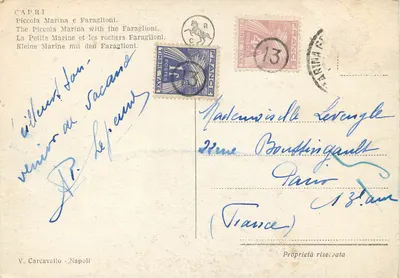 CAPRI
Piccola Marina e Faraglioni.
The Piccola Marina with the Faraglioni.
La Petite Marine et les rochers Faraglioni.
Kleine Marine mit den Faraglioni.
13
13
MARINA
venir de vacance
Mademoiselle
rue Boussingault
Paris 13e
(France)
V. Carcavallo - Napoli
Proprietà riservata